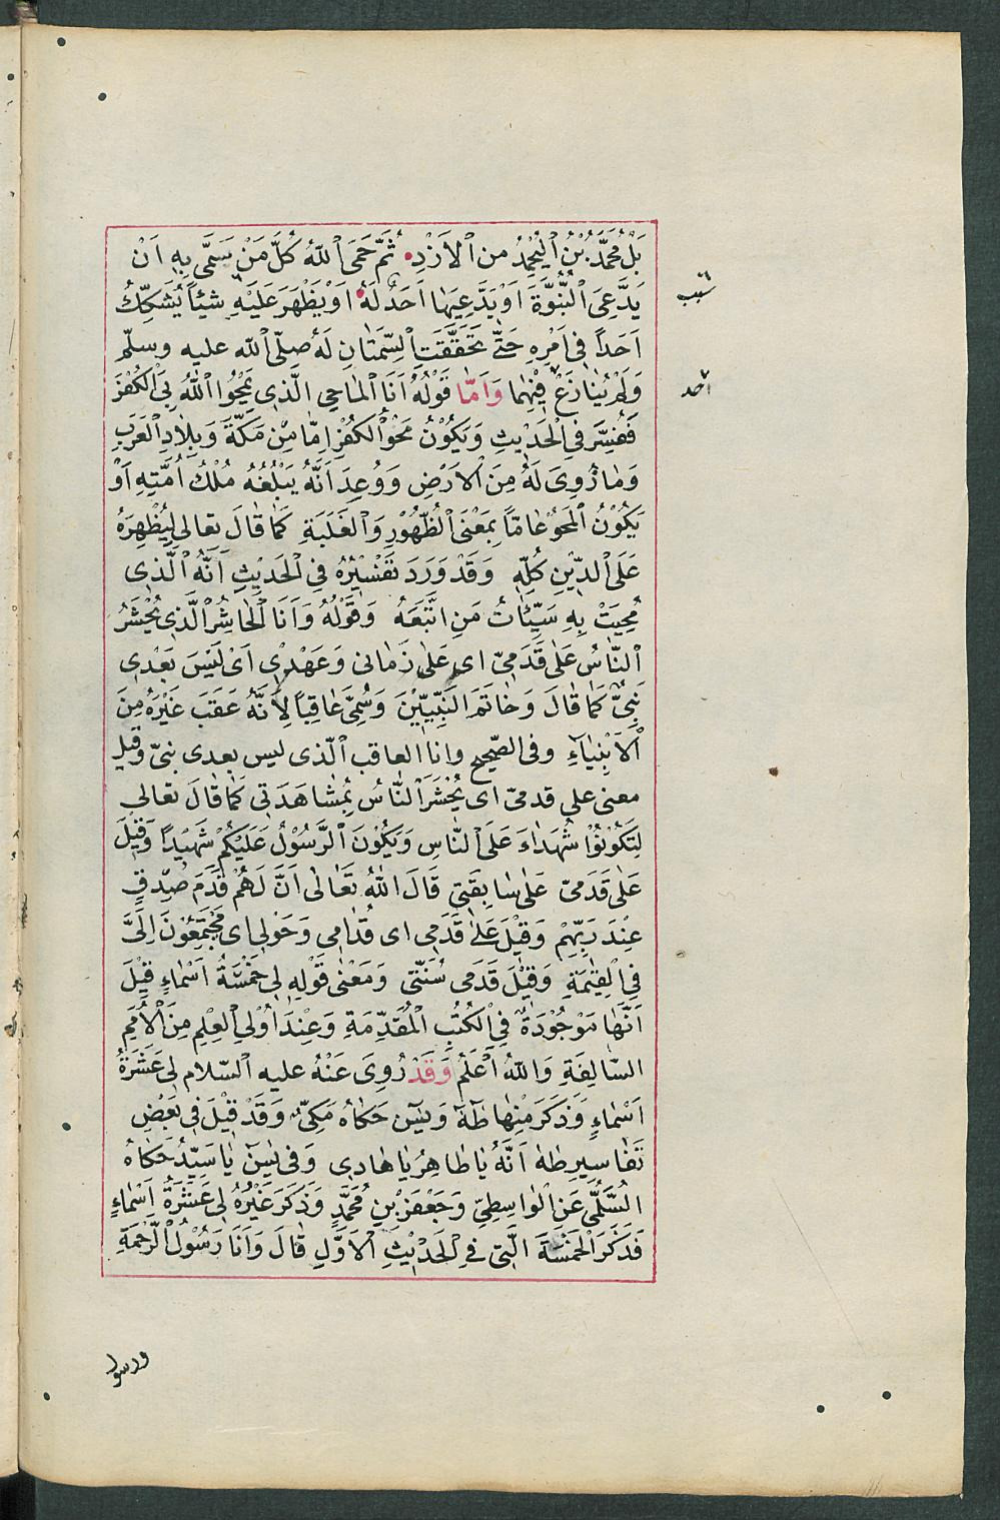 بَلْ مُحَمَّدُ بْنُ الْيَحْمِدُ من الْأَزْدِ ثُمَّ حَمَى اللّٰهُ كُلَّ مَنْ سَمَّى بِهِ اَنْ
يَدَّعِىَ النُّبُوَّةَ اَوْ يَدَّعِيَهٰا اَحَدٌ لَهُ اَوْ يَظْهَرَ عَلَيْهِ شَيْئاً يُشَكِّكُ
اَحَداً فى اَمْرِهِ حَتّٰى تَحَقَّقَتِ السِّمَتٰانِ لَهُ صلّى اللّٰه عليه وسلّم
وَلَمْ يُنٰازَعْ فيْهِمٰا وَاَمّٰا قَوْلُهُ اَنَا الْمٰاحِى الَّذى يَمْحُوا اللّٰهُ بِىَ الْكُفْرَ
فَفُسِّرَ فِى الْحَديْثِ وَيَكُوْنُ مَحْوُ الْكُفْرِ اِمّٰا مِنْ مَكَّةَ وَبِلٰادِ الْعَرَبِ
وَمٰا زُوِىَ لَهُ مِنَ الْاَرْضِ وَوُعِدَ اَنَّهُ يَبْلُغُهُ مُلْكُ اُمَّتِهِ اَوْ
يَكُوْنُ الْمَحْوُ عٰامّاً بِمَعْنَى الظُّهُوْرِ وَالْغَلَبَةِ كَمٰا قٰالَ تعٰالى لِيُظْهِرَهُ
عَلَى الدّيْنِ كُلِّهِ وَقَدْ وَرَدَ تَفْسيْرُهُ فِى الْحَديْثِ اَنَّهُ الَّذى
مُحِيَتْ بِهِ سَيِّئٰاتُ مَنِ اتَّبَعَهُ وَقَوْلُهُ وَاَنَا الْحٰاشِرُ الَّذى يُحْشَرُ
النّٰاسُ عَلٰى قَدَمِىّ اى عَلٰى زَمٰانى وَعَهْدى اَىْ لَيْسَ بَعْدى
نَبِىٌّ كَمٰا قٰالَ وَخٰاتَمَ النَّبِيّيْنَ وَسُمِّىَ عٰاقِباً لِاَنَّهُ عَقَبَ غَيْرَهُ مِنَ
الْاَنْبِيٰاءِ وفى الصّحيح وانا العاقب الّذى ليس بعدى نبىّ وقيل
معنى على قدمىّ اى يُحْشَرُ النّٰاسُ بِمُشٰاهَدَتى كَمٰا قٰالَ تعٰالى
لِتَكُوْنُوْا شُهَدٰاءَ عَلَى النّٰاسِ وَيَكُوْنَ الرَّسُوْلُ عَلَيْكُمْ شَهيْداً وَقيْلَ
عَلٰى قَدَمىّ عَلٰى سٰابِقَتى قَالَ اللّٰهُ تَعَالٰى اَنَّ لَهُمْ قَدَمَ صِدْقٍ
عِنْدَ رَبِّهِمْ وَقيْلَ عَلٰى قَدَمى اى قُدّٰامى وَحَوْلى اى مُجْتَمِعُوْنَ اِلَىَّ
فِى الْقِيٰمَةِ وَقيْلَ قَدَمى سُنَّتى وَمَعْنٰى قَوْلِهِ لى خَمْسَةُ اَسْمٰاءٍ قيْلَ
اَنَّهٰا مَوْجُوْدَةٌ فِى الْكُتُبِ الْمُقَدِّمَةِ وَعِنْدَ اُوْلِى الْعِلْمِ مِنَ الْاُمَمِ
السّٰالِفَةِ وَاللّٰهُ اَعْلَمُ وَقَدْ رُوِىَ عَنْهُ عليه السّلام لى عَشَرَةُ
اَسْمٰاءٍ وَذَكَرَ مِنْهٰا طٰهٰ وَيٰسٓ حَكٰاهُ مَكِّىٌّ وَقَدْ قيْلَ فى بَعْضِ
تَفٰاسيرِ طٰهٰ اَنَّهُ يٰا طٰاهِرُ يٰا هٰادى وَفى يٰسٓ يٰا سَيِّدُ حَكٰاهُ
السُّلَّمِىُّ عَنِ الْوٰاسِطِىِّ وَجَعْفَرَ بْنِ مُحَمَّدٍ وَذَكَرَ غَيْرُهُ لى عَشَرَةُ اَسْمٰاءٍ
فَذَكَرَ الْخَمْسَةَ الَّتى فِى الْحَديْثِ الْاَوَّلِ قٰالَ وَاَنَا رَسُوْلُ الرَّحْمَةِ
ورسول